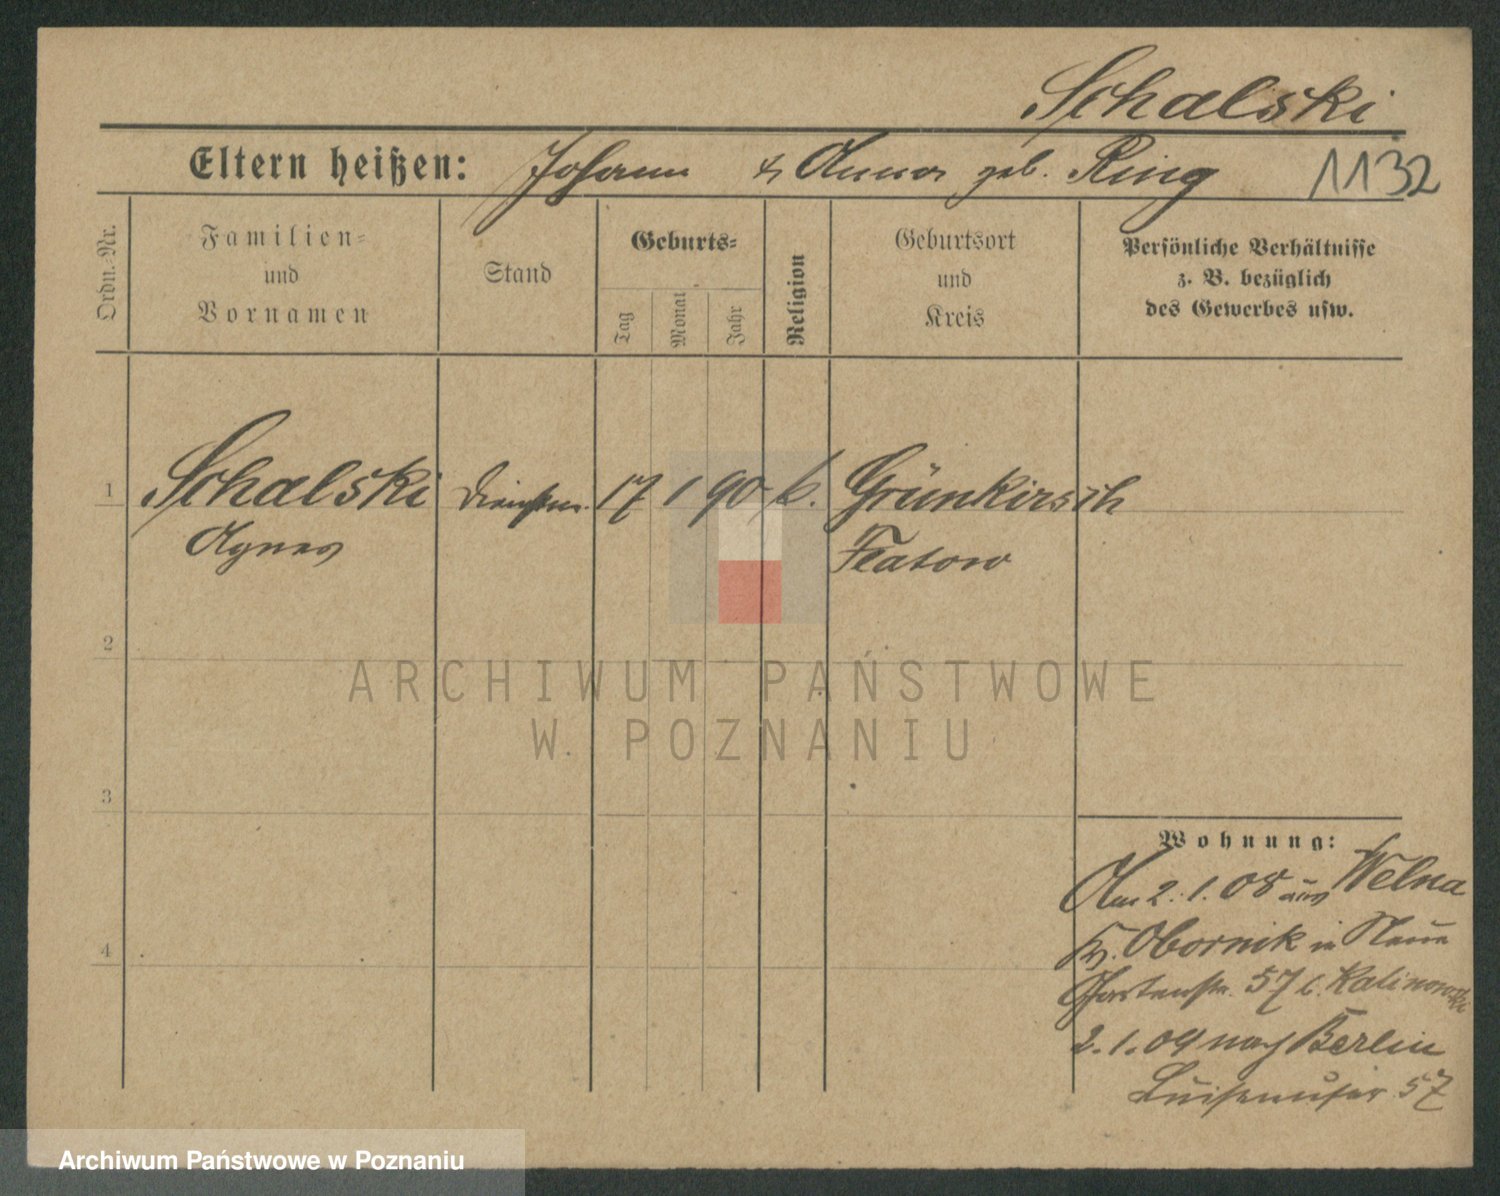 Schalski
Eltern heißen: Johann & Anna geb. Ring 1132
Ordn.-Nr.
Familien-
und
Vornamen
Stand
Geburts-
Tag
Monat
Jahr
Religion
Geburtsort
und
Kreis
Persönliche Verhältnisse
z. B. bezüglich
des Gewerbes usw.
1 Schalski Dienstm. 17 1 90 k. Grünkirsch
Agnes Flatow
2
3
4
Wohnung:
Am 2.1.08 aus Welna
Kr. Obornik in Neue
Gartenstr. 57 b. Kalinowski
2.1.09 nach Berlin
Luisenufer 57
ARCHIWUM PAŃSTWOWE
W POZNANIU
Archiwum Państwowe w Poznaniu